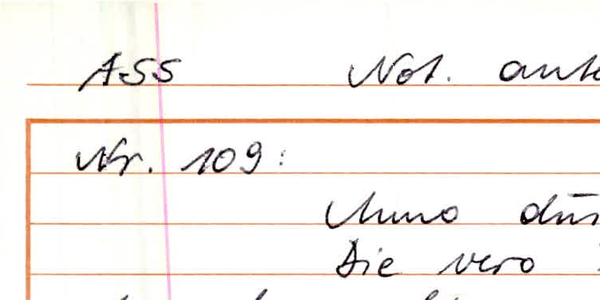 ASS Not. ante
Nr. 109:
Anno dni
Die vero